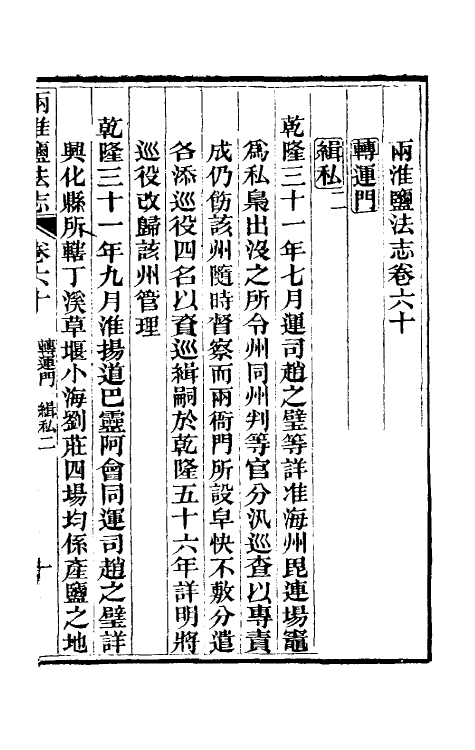 兩淮鹽法志卷六十
轉運門
緝私二
乾隆三十一年七月運司趙之璧等詳准海州毘連場竈
為私梟出沒之所令州同州判等官分汛巡查以專責
成仍飭該州隨時督察而兩衙門所設皁快不敷分遣
各添巡役四名以資巡緝嗣於乾隆五十六年詳明將
巡役改歸該州管理
乾隆三十一年九月淮揚道巴靈阿會同運司趙之璧詳
興化縣所轄丁溪草堰小海劉莊四場均係產鹽之地
兩淮鹽法志 卷六十 轉運門 緝私二